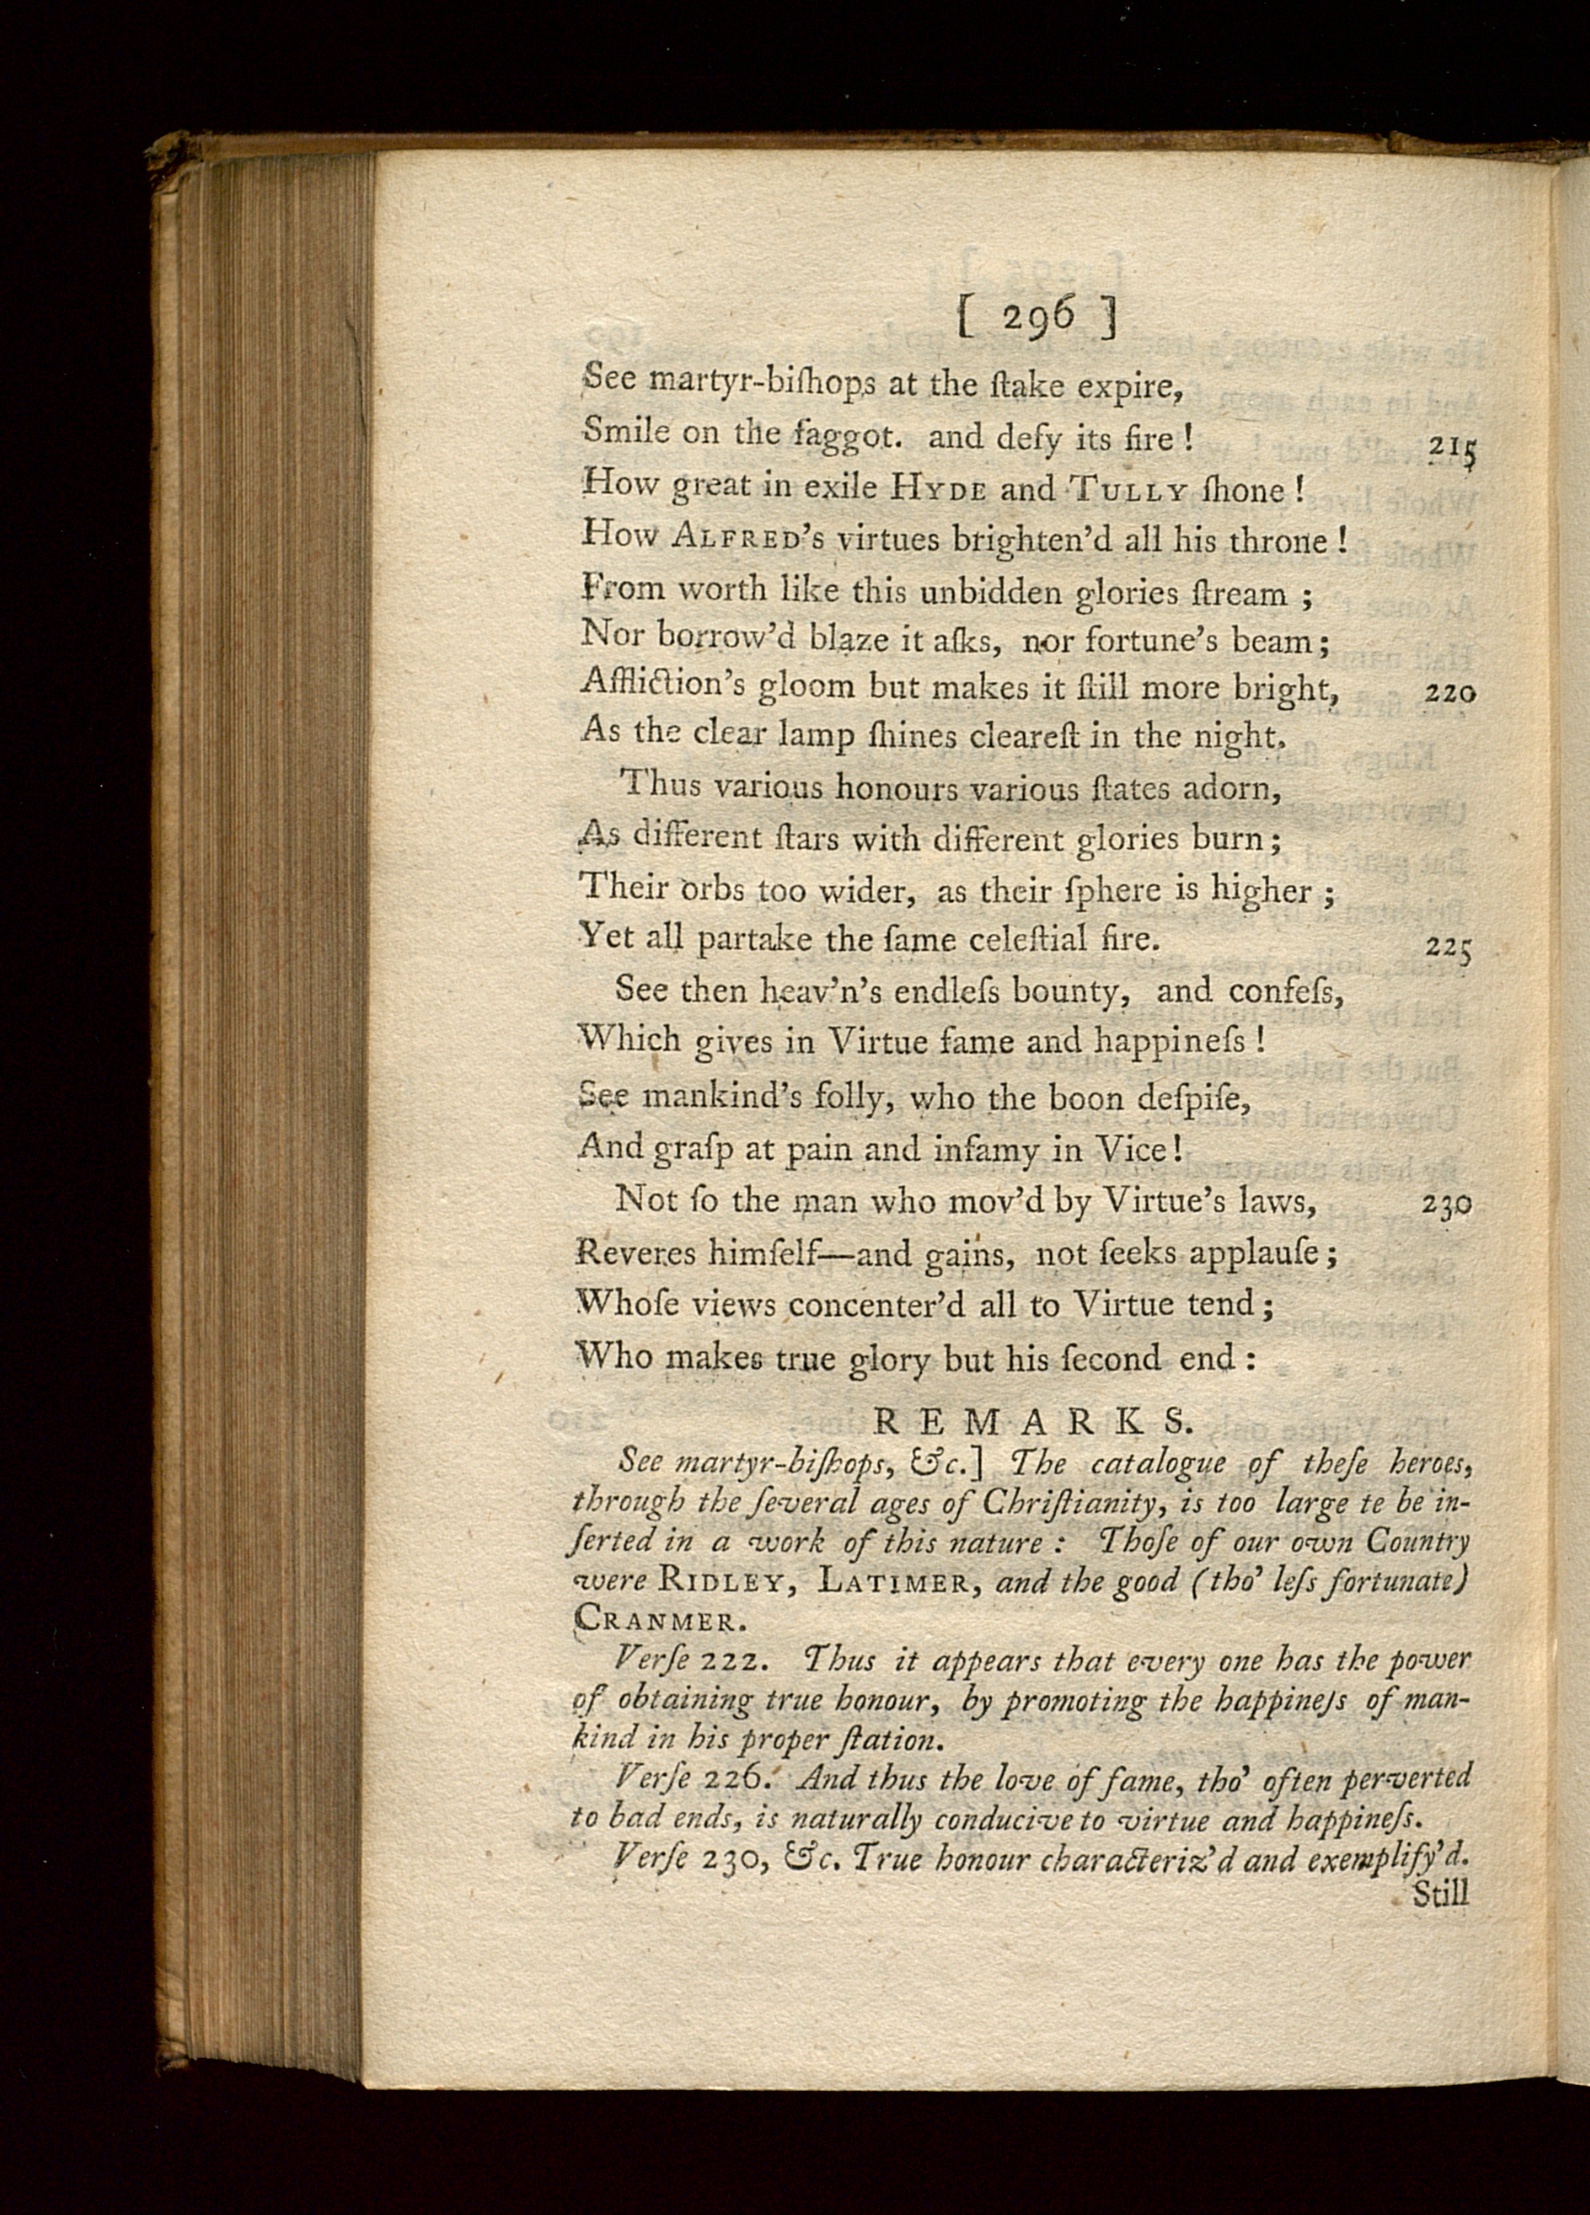 [ 296 ]
See martyr-biſhops at the ſtake expire,
Smile on the faggot. and defy its fire !                215
How great in exile HYDE and TULLY ſhone !
How ALFRED's virtues brighten'd all his throne !
From worth like this unbidden glories ſtream ;
Nor borrow'd blaze it aſks, nor fortune's beam;
Affliction's gloom but makes it ſtill more bright,                220
As the clear lamp ſhines cleareſt in the night.
Thus various honours various ſtates adorn,
As different ſtars with different glories burn;
Their orbs too wider, as their ſphere is higher ;
Yet all partake the ſame celeſtial fire.                225
See then heav'n's endleſs bounty, and confeſs,
Which gives in Virtue fame and happineſs !
See mankind's folly, who the boon deſpiſe,
And graſp at pain and infamy in Vice!
Not ſo the man who mov'd by Virtue's laws,                230
Reveres himſelf—and gains, not ſeeks applauſe;
Whoſe views concenter'd all to Virtue tend;
Who makes true glory but his ſecond end :
REMARKS.
See martyr-biſhops, &c.] The catalogue of theſe heroes,
through the ſeveral ages of Chriſtianity, is too large te be in-
ſerted in a work of this nature : Thoſe of our own Country
were RIDLEY, LATIMER, and the good (tho' leſs fortunate)
CRANMER.
Verſe 222. Thus it appears that every one has the power
of obtaining true honour, by promoting the happineſs of man-
kind in his proper ſtation.
Verſe 226. And thus the love of fame, tho' often perverted
to bad ends, is naturally conducive to virtue and happineſs.
Verſe 230, &c. True honour characteriz'd and exemplify'd.
Still